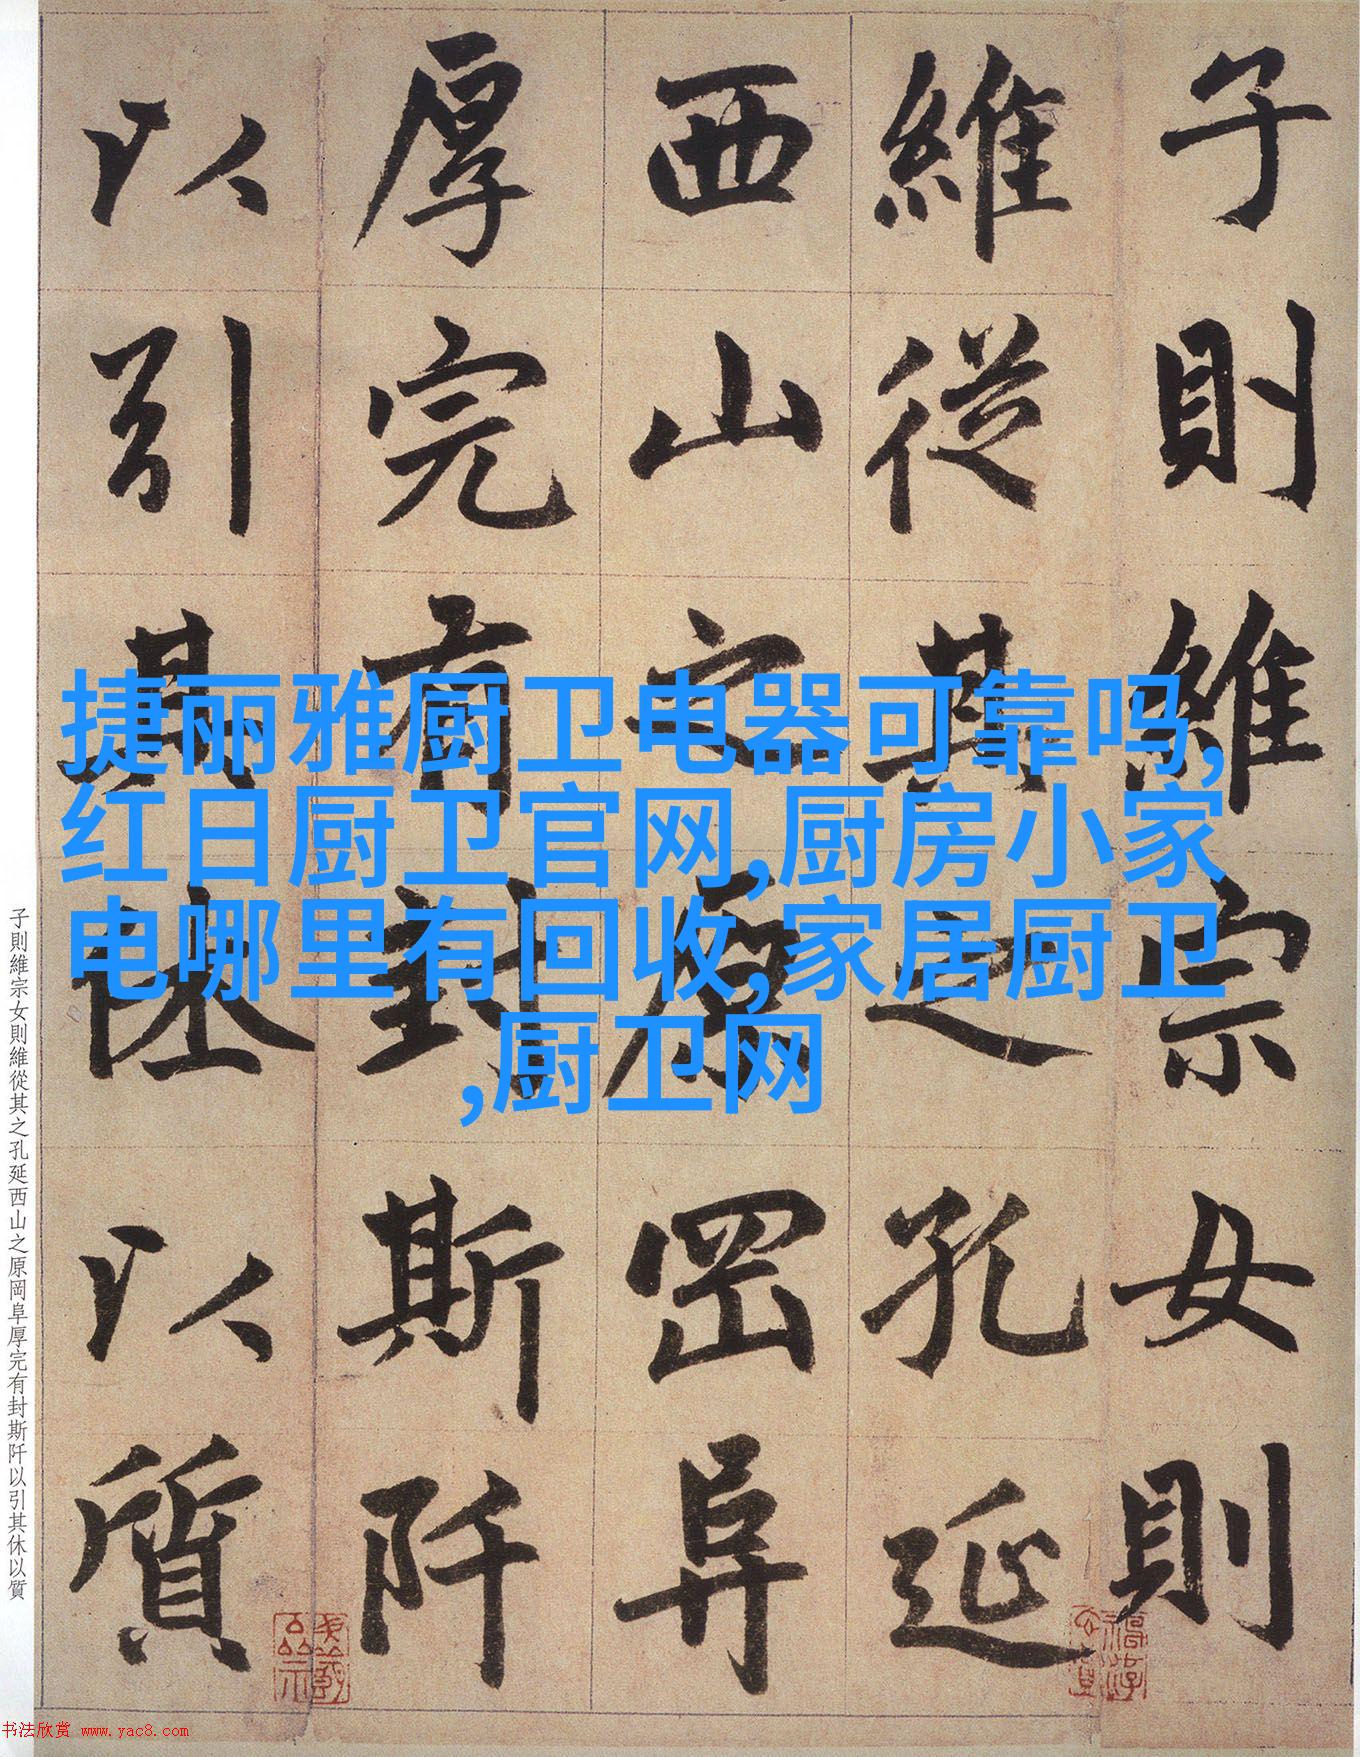 子則維宗女則
維從其之孔延
西山之原岡阜
厚完有封斯阡
以引其休以質
捷丽雅厨卫电器可靠吗,
红日厨卫官网,厨房小家
电哪里有回收,家居厨卫
,厨卫网
子則維宗女則維從其之孔延西山之原岡阜厚完有封斯阡以引其休以質
书法欣赏 www.yac8.com